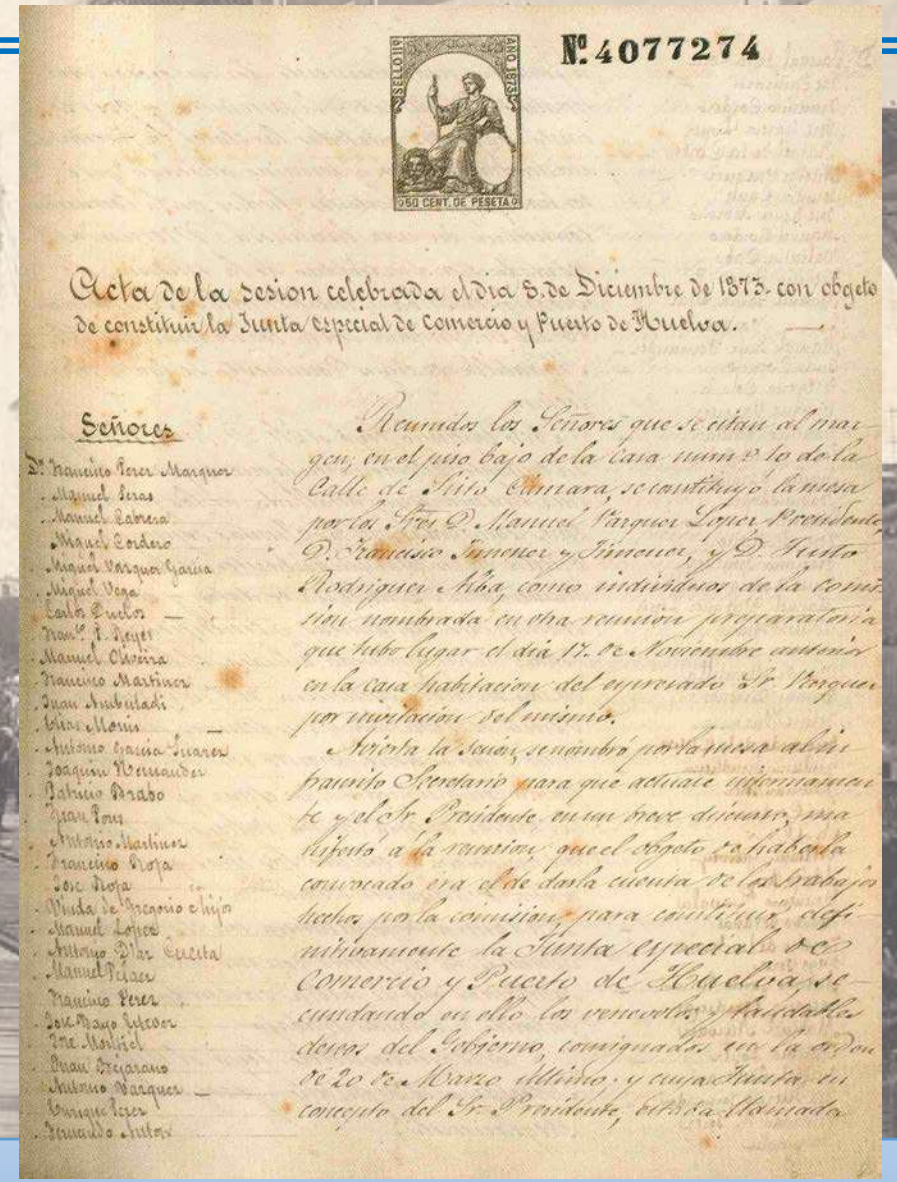 Nº. 4077274
SELLO 11º
AÑO 1873
50 CENT. DE PESETA
Acta de la sesion celebrada el dia 8. de Diciembre de 1873. con obgeto
de constituir la Junta especial de Comercio y Puerto de Huelva.
Señores
Dn. Francisco Perez Marquez
Manuel Seras
Manuel Cabrera
Miguel Cordero
Miguel Vazquez Garcia
Miguel Vega
Carlos Duclos
Franco. P. Reyes
Manuel Oliveira
Francisco Martinez
Juan
Elias Monis
Antonio Garcia Suarez
Joaquin Hernandez
Patricio Brabo
Juan Pons
Antonio Martinez
Francisco Roja
José Roja
Viuda de Gregorio e hijos
Manuel Lopez
Antonio Diaz
Manuel
Francisco Perez
José Bayo
José
Juan Bejarano
Antonio Vazquez
Enrique Perez
Fernando
Reunidos los Señores que se citan al mar-
gen, en el piso bajo de la casa num.º 10 de la
Calle de Cámara, se constituyó la mesa
por los Sres. D. Manuel Vazquez Lopez, Presidente,
D. Francisco Jimenez y Jimenez, y D. Justo
Rodriguez Alba, como individuos de la comi-
sión nombrada en otra reunion preparatoria
que tubo lugar el dia 17. de Noviembre anterior
en la casa habitacion del espresado Sr. Vazquez
por invitacion del mismo.
Abierta la sesion, se nombró por la mesa al in-
frascrito Secretario para que actuase interinamen-
te y el Sr. Presidente, en un breve discurso, ma-
nifestó á la reunion, que el obgeto de haberla
convocado era el de darla cuenta de los trabajos
hechos por la comision, para constituir defi-
nitivamente la Junta especial de
Comercio y Puerto de Huelva, se-
cundando en ello los venevolos y laudables
deseos del Gobierno, consignados en la orden
de 20 de Marzo último; y cuya Junta, en
concepto del Sr. Presidente, está llamada